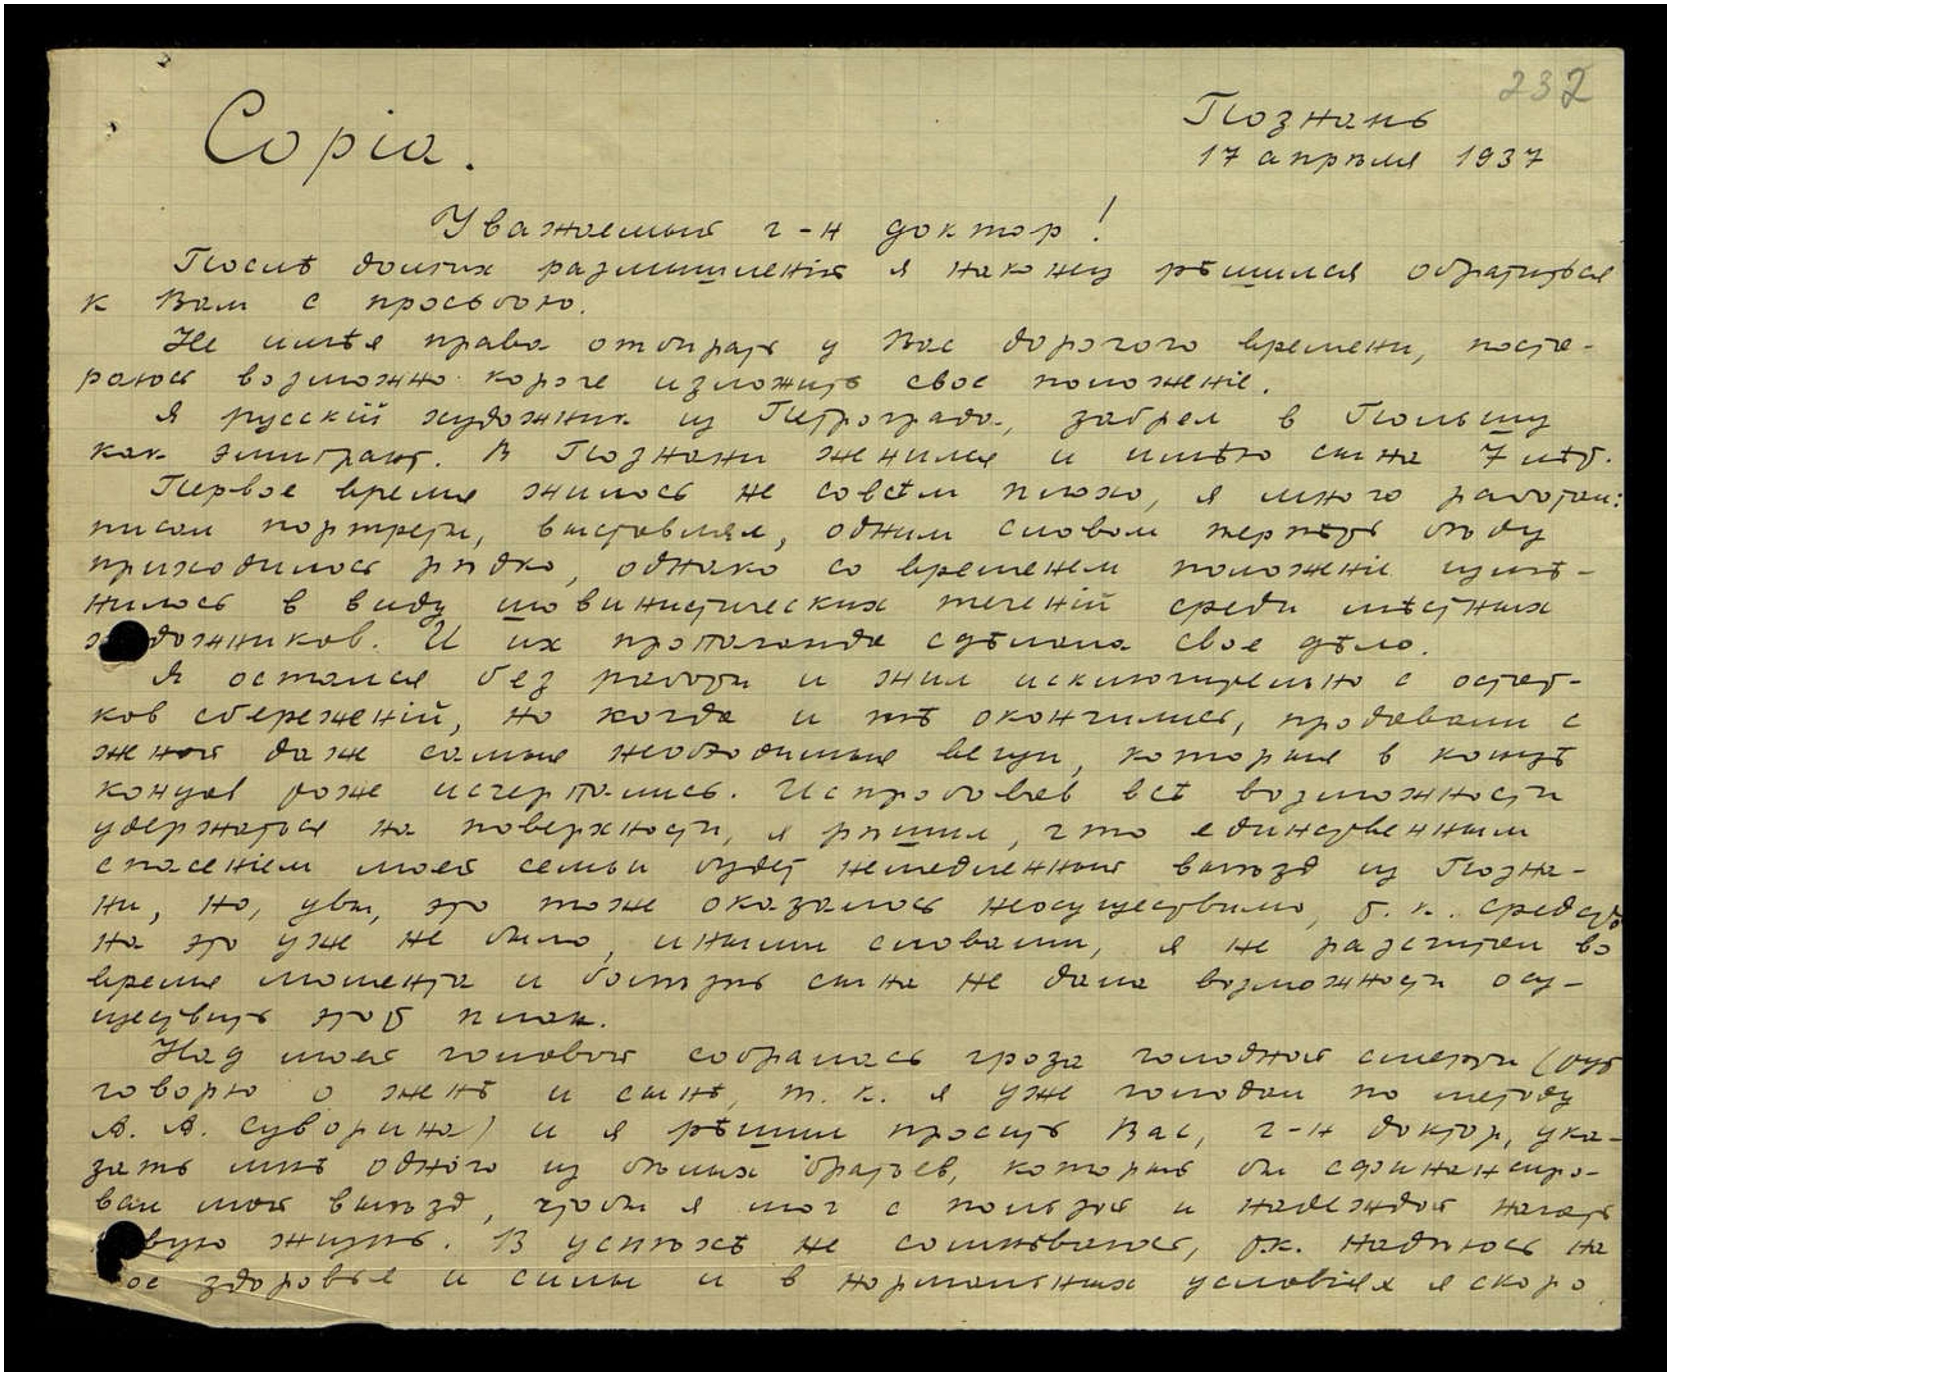 232
Copia.
Познань
17 апрѣля 1937
Уважаемый г-н доктор!
Послѣ долгих размышленій я наконец рѣшился обратиться
к Вам с просьбою.
Не имѣя права отбирать у Вас дорогого времени, поста-
раюсь возможно короче изложить свое положеніе.
Я русскій художник из Петрограда, забрел в Польшу
как эмигрант. В Познани женился и имѣю сына 7 лѣт.
Первое время жилось не совсѣм плохо, я много работал:
писал портреты, выставлял, одним словом терпѣть бѣду
приходилось рѣдко, однако со временем положеніе измѣ-
нилось в виду шовинистических теченій среди мѣстных
художников. И их пропаганда сдѣлала свое дѣло.
Я остался без работы и жил исключительно с остат-
ков сбереженій, но когда и тѣ окончились, продавали с
женой даже самые необходимые вещи, которые в концѣ
концов тоже исчерпались. Испробовав всѣ возможности
удержаться на поверхности, я рѣшил, что единственным
спасеніем моей семьи будет немедленный выѣзд из Позна-
ни, но, увы, это тоже оказалось неосуществимо, т. к. средств
на это уже не было, иными словами, я не разсчитал во
время момента и болѣзнь сына не дала возможности осу-
ществить этот план.
Над моей головой собралась гроза голодной смерти (тут
говорю о женѣ и сынѣ, т. к. я уже голодал по методу
А. А. Суворина) и я рѣшил просить Вас, г-н доктор, ука-
зать мнѣ одного из братьев, который бы сфинансиро-
вал мой выѣзд, чтобы я мог с пользой и надеждой начать
новую жизнь. В успѣхѣ не сомнѣваюсь, т.к. надѣюсь на
свое здоровье и силы и в нормальных условіях я скоро